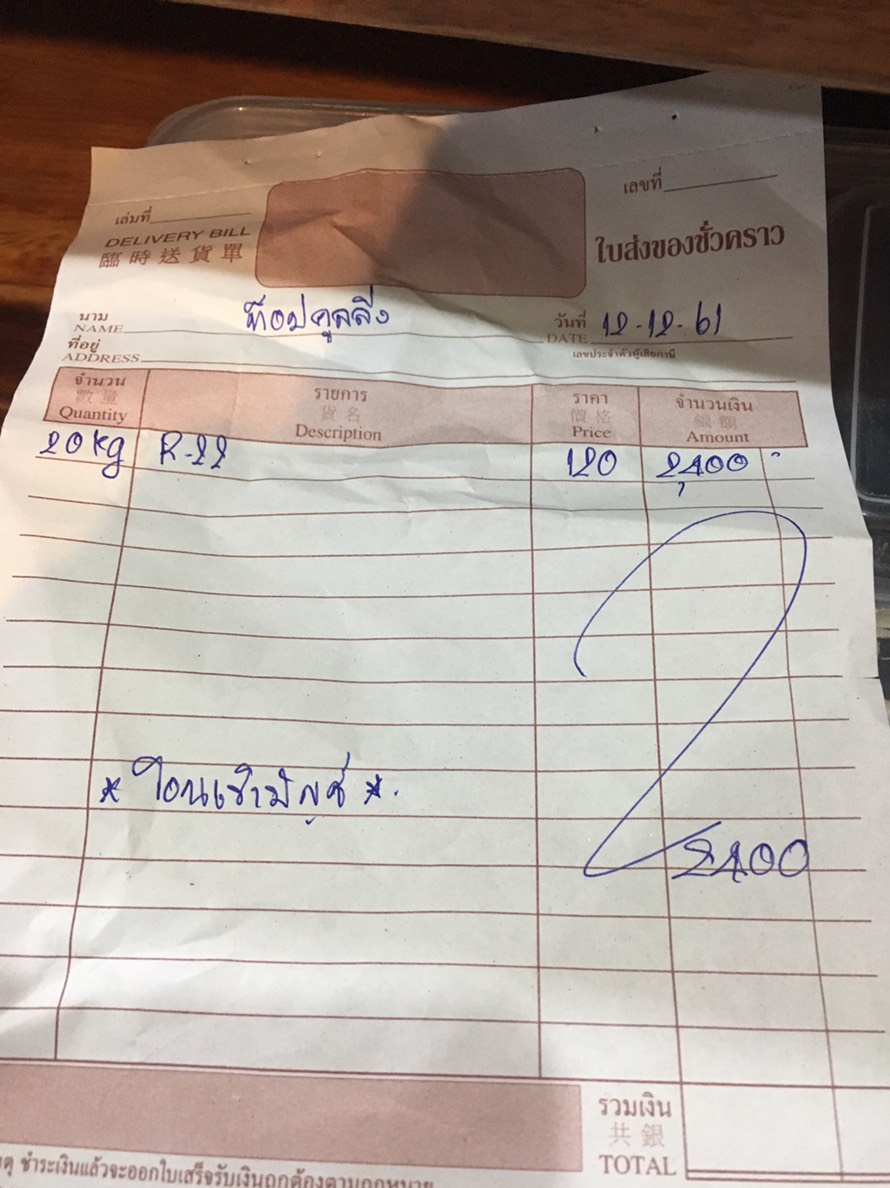 เล่มที่
เลขที่
DELIVERY BILL
臨時送貨單
ใบส่งของชั่วคราว
นาม
NAME
ท๊อปคูลลิ่ง
วันที่
DATE
12-12-61
ที่อยู่
ADDRESS
เลขประจำตัวผู้เสียภาษี
จำนวน
數量
Quantity
รายการ
貨名
Description
ราคา
價格
Price
จำนวนเงิน
銀額
Amount
20 kg R-22 120 2,400
* โอนเข้าบัญชี *
2,400
รวมเงิน
共銀
TOTAL
ชำระเงินแล้วจะออกใบเสร็จรับเงินถูกต้องตามกฎหมาย